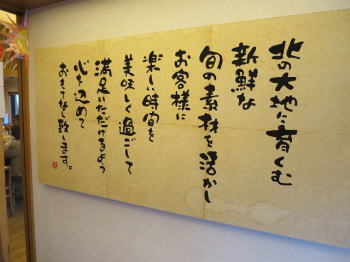 北の大地に育くむ
新鮮な
旬の素材を活かし
お客様に
楽しい時間を
美味しく過ごして
満足いただけるよう
心を込めて
おもてなし致します。